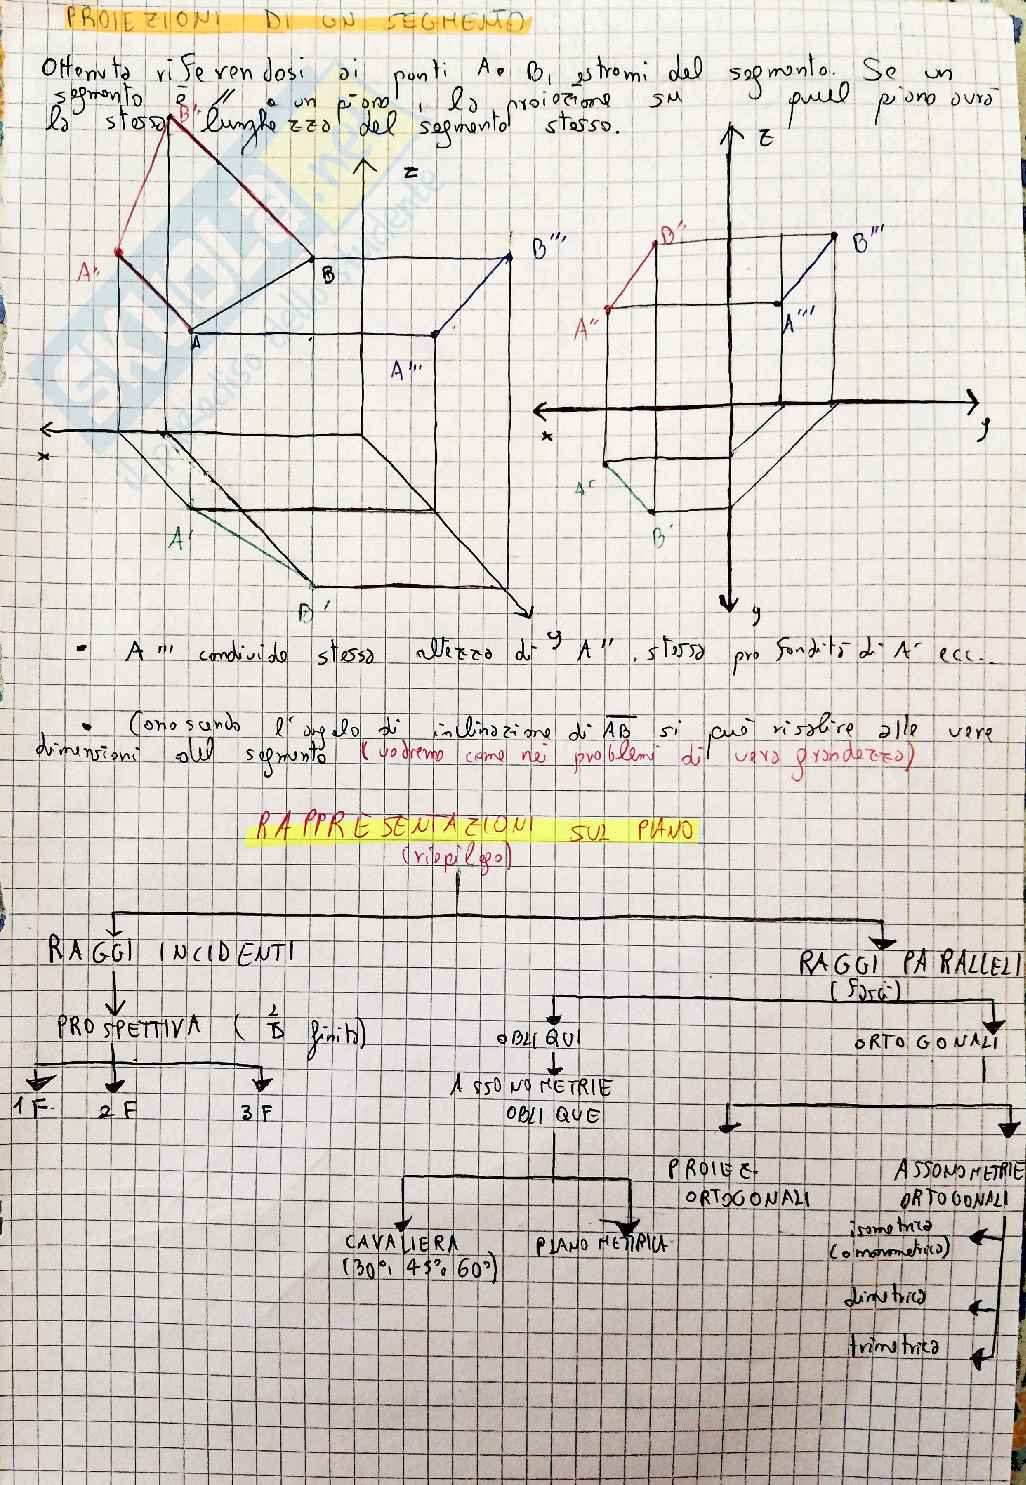 PROIEZIONI DI UN SEGMENTO
Ottenuta riferendosi ai punti A e B, estremi del segmento. Se un
segmento è // a un piano, la proiezione su quel piano avrà
la stessa lunghezza del segmento stesso.
z
z
B''
A''
B
A
B'''
A'''
x
A'
B'
y
B''
A''
B'''
A'''
x
y
A'
B'
y
• A''' condivide stessa altezza di A'', stessa profondità di A' ecc...
• Conoscendo l'angolo di inclinazione di AB si può risalire alle vere
dimensioni del segmento (vedremo come nei problemi di vera grandezza)
RAPPRESENTAZIONI SUL PIANO
(riepilogo)
RAGGI INCIDENTI
RAGGI PARALLELI
PROSPETTIVA ( finita)
OBLIQUI
ORTOGONALI
1F 2F 3F
ASSONOMETRIE
OBLIQUE
PROIEZ.
ORTOGONALI
ASSONOMETRIE
ORTOGONALI
CAVALIERA
(30°, 45°, 60°)
PLANOMETRICA
isometrica
(o monometrica)
dimetrica
trimetrica
SKUOLA.net